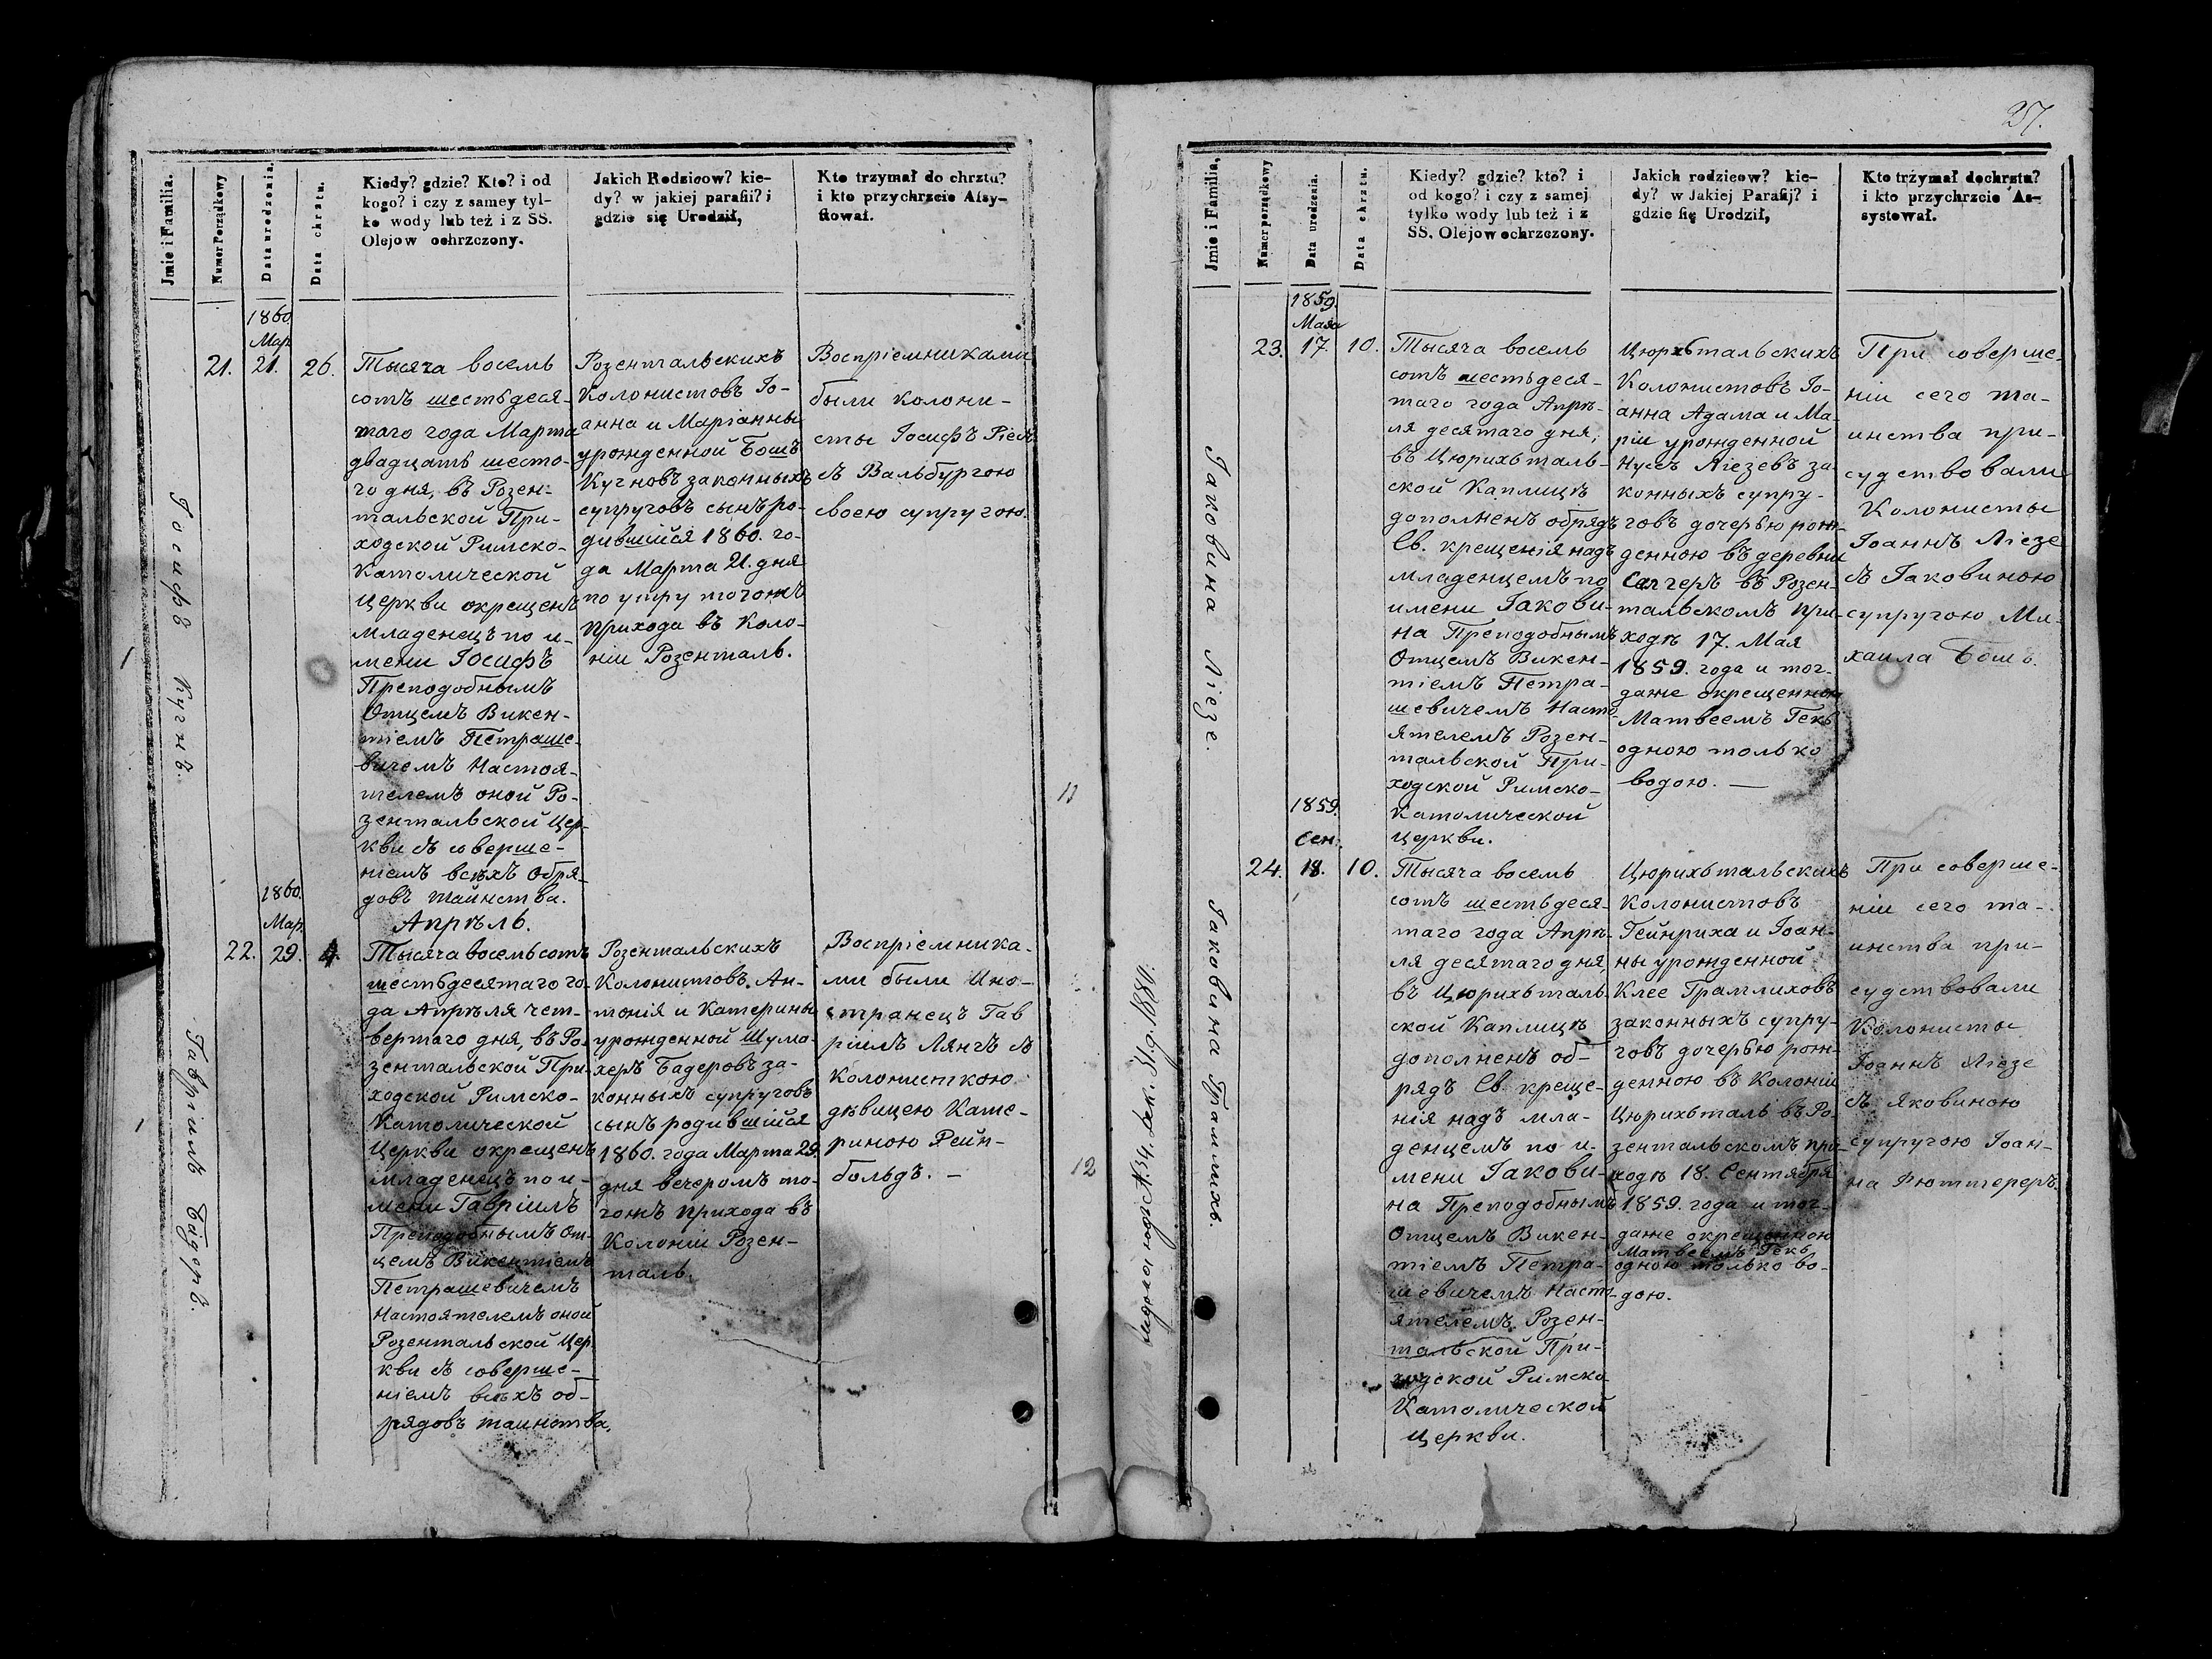 37.
Jmie i Familia.
Numer Porządkowy
Data urodzenia.
Data chrztu.
Kiedy? gdzie? Kto? i od
kogo? i czy z samey tyl-
ko wody lub też i z SS.
Olejow ochrzczony.
Jakich Rodzicow? kie-
dy? w jakiej parafii? i
gdzie się Urodził,
Kto trzymał do chrztu?
i kto przychrzcie Assy-
stował.
Іосифъ Кугнъ.
1860
Мар
21. 21. 26.
Тысяча восемь
сотъ шестьдеся-
таго года Марта
двадцать шесто-
го дня, въ Розен-
тальской При-
ходской Римско-
Католической
Церкви окрещенъ
младенецъ по и-
мени Іосифъ
Преподобнымъ
Отцемъ Викен-
тіемъ Петраше-
вичемъ Настоя-
телемъ оной Ро-
зентальской Цер-
кви съ соверше-
ніемъ всѣхъ обря-
довъ таинства.
Розентальскихъ
Колонистовъ Іо-
анна и Маріанны
урожденной Бошъ
Кугновъ законныхъ
супруговъ сынъ ро-
дившійся 1860. го-
да Марта 21. дня
по утру тогожъ
Прихода въ Коло-
ніи Розенталь.
Воспріемниками
были колони-
сты Іосифъ Рісъ
съ Вальбургою
своею супругою.
1
Гавріилъ Бадеръ.
1860.
Мар.
Апрѣль.
22. 29. 4.
Тысяча восемьсотъ
шестьдесятаго го-
да Апрѣля чет-
вертаго дня, въ Ро-
зентальской При-
ходской Римско-
Католической
Церкви окрещенъ
младенецъ по и-
мени Гавріилъ
Преподобнымъ От-
цемъ Викентіемъ
Петрашевичемъ
Настоятелемъ оной
Розентальской Цер-
кви съ соверше-
ніемъ всѣхъ об-
рядовъ таинства.
Розентальскихъ
Колонистовъ Ан-
тонія и Катерины
урожденной Шума-
херъ Бадеровъ за-
конныхъ супруговъ
сынъ родившійся
1860. года Марта 29.
дня вечеромъ то-
гожъ Прихода въ
Колоніи Розен-
таль.
Воспріемника-
ми были Ино-
странецъ Гав
ріилъ Лянгъ съ
колонисткою
дѣвицею Кате-
риною Рейн-
больдъ. —
1
11
12
Jmie i Familia,
Numer porządkowy
Data urodzenia.
Data chrztu.
Kiedy? gdzie? kto? i
od kogo? i czy z samej
tylko wody lub też i z
SS. Olejow ochrzczony.
Jakich rodzicow? kie-
dy? w Jakiej Parafij? i
gdzie się Urodził,
Kto trzymał dochrztu?
i kto przychrzcie As-
systował.
Іаковина Ліезе.
1859.
Мая
23. 17. 10.
Тысяча восемь
сотъ шестьдеся-
таго года Апрѣ-
ля десятаго дня,
въ Цюрихъталь-
ской Каплицѣ
дополненъ обрядъ
Св. крещенія надъ
младенцемъ по
имени Іакови-
на Преподобнымъ
Отцемъ Викен-
тіемъ Петра-
шевичемъ Насто-
ятелемъ Розен-
тальской При-
ходской Римско-
Католической
Церкви.
Цюрихтальскихъ
Колонистовъ Іо-
анна Адама и Ма-
ріи урожденной
Нуссъ Ліезевъ за-
конныхъ супру-
говъ дочерью рож-
денною въ деревни
въ Розен-
тальскомъ При-
ходѣ 17. Мая
1859. года и тог-
даже окрещенною
Матвеемъ Гекъ
одною только
водою. —
При соверше-
ніи сего та-
инства при-
судствовали
Колонисты
Іоаннъ Ліезе
съ Іаковиною
супругою Ми-
хаила Бошъ.
Іаковина Грамлихъ.
1859.
Сен.
24. 18. 10.
Тысяча восемь
сотъ шестьдеся-
таго года Апрѣ-
ля десятаго дня
въ Цюрихъталь-
ской Каплицѣ
дополненъ об-
рядъ Св. креще-
нія надъ мла-
денцемъ по и-
мени Іакови-
на Преподобнымъ
Отцемъ Викен-
тіемъ Петра-
шевичемъ Насто-
ятелемъ Розен-
тальской При-
ходской Римско
Католической
Церкви.
Цюрихътальскихъ
Колонистовъ
Гейнриха и Іоан-
ны урожденной
Клее Грамлиховъ
законныхъ супру-
говъ дочерью рож-
денною въ Колоніи
Цюрихъталь въ Ро-
зентальскомъ При-
ходѣ 18. Сентября
1859. года и тог-
даже окрещенною
Матвеемъ Гекъ
одною только во-
дою.
При соверше-
ніи сего та-
инства при-
судствовали
Колонисты
Іоаннъ Ліезе
съ Яковиною
супругою Іоан-
на Фюттереръ.